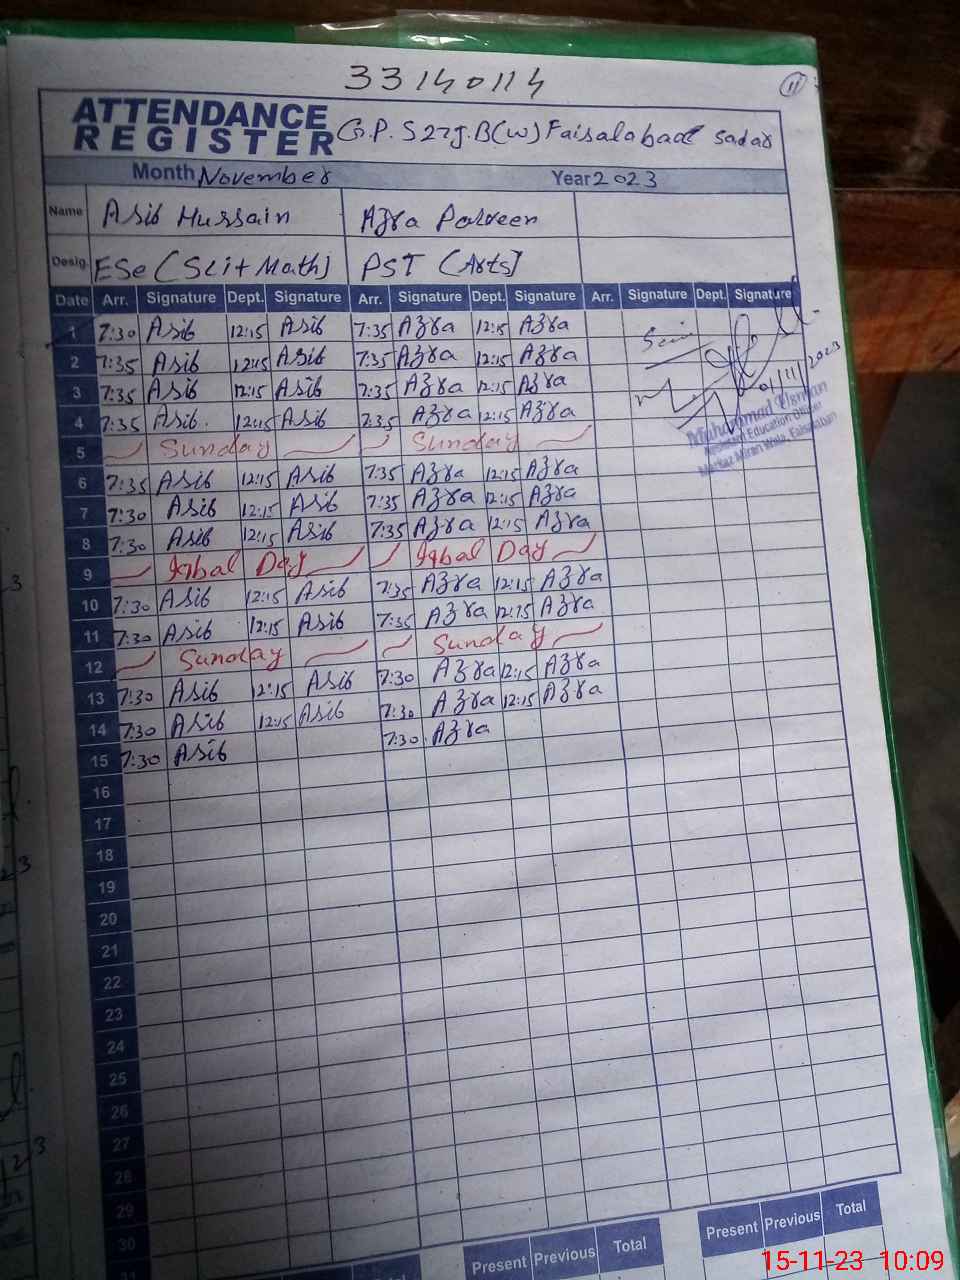 33140114
11
ATTENDANCE
REGISTER G.P.S 27J.B(W) Faisalabad Sadar
Month November Year 2023
Name Asib Hussain Azra Parveen
Desig. ESe (Sci+Math) PST (Arts)
Date Arr. Signature Dept. Signature Arr. Signature Dept. Signature Arr. Signature Dept. Signature
1 7:30 Asib 12:15 Asib 7:35 Azra 12:15 Azra
2 7:35 Asib 12:15 Asib 7:35 Azra 12:15 Azra
3 7:35 Asib 12:15 Asib 7:35 Azra 12:15 Azra
4 7:35 Asib 12:15 Asib 7:35 Azra 12:15 Azra
5 Sunday Sunday
6 7:35 Asib 12:15 Asib 7:35 Azra 12:15 Azra
7 7:30 Asib 12:15 Asib 7:35 Azra 12:15 Azra
8 7:30 Asib 12:15 Asib 7:35 Azra 12:15 Azra
9 Iqbal Day Iqbal Day
10 7:30 Asib 12:15 Asib 7:35 Azra 12:15 Azra
11 7:30 Asib 12:15 Asib 7:35 Azra 12:15 Azra
12 Sunday Sunday
13 7:30 Asib 12:15 Asib 7:30 Azra 12:15 Azra
14 7:30 Asib 12:15 Asib 7:30 Azra 12:15 Azra
15 7:30 Asib 7:30 Azra
16
17
18
19
20
21
22
23
24
25
26
27
28
29
30
31
Present Previous Total Present Previous Total
Muhammad
Assistant Education Officer
Markaz Miran Wala, Faisalabad
15-11-23 10:09